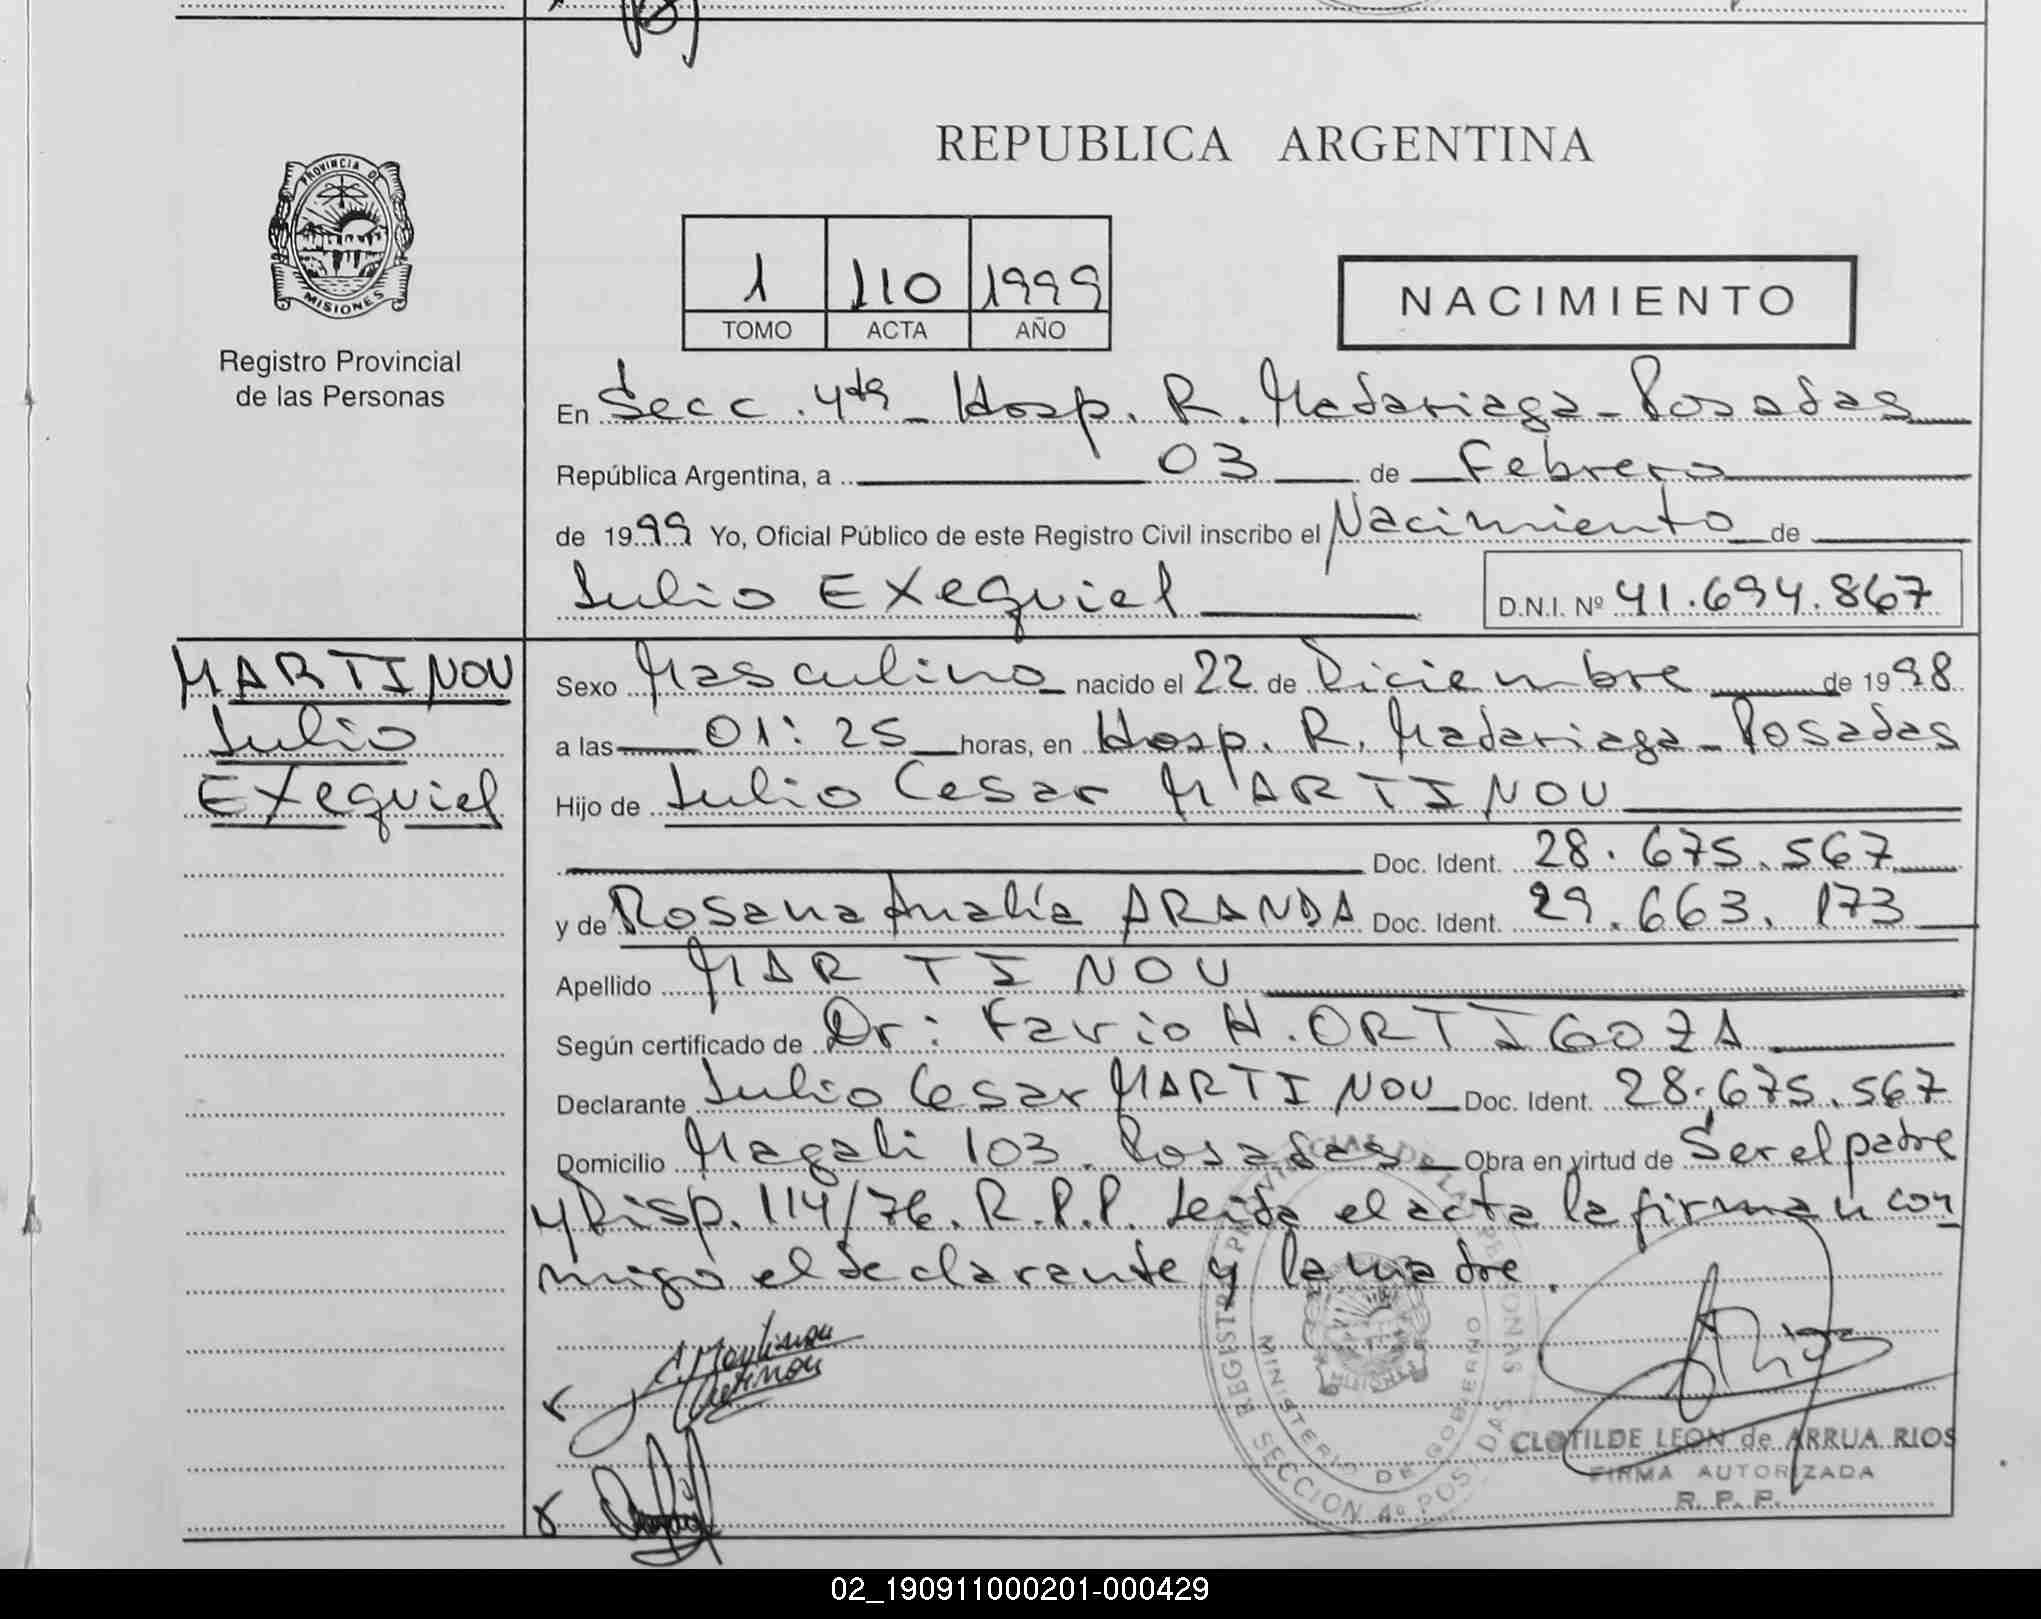 REPUBLICA ARGENTINA
PROVINCIA DE
MISIONES
Registro Provincial
de las Personas
1 110 1999
TOMO ACTA AÑO
NACIMIENTO
En Secc. 4ta - Hosp. R. Madariaga - Posadas
República Argentina, a 03 de Febrero
de 1999 Yo, Oficial Público de este Registro Civil inscribo el Nacimiento de
Julio Exequiel D.N.I. Nº 41.694.867
MARTINOU
Julio
Exequiel
Sexo Masculino nacido el 22 de Diciembre de 1998
a las 01:25 horas, en Hosp. R. Madariaga - Posadas
Hijo de Julio Cesar MARTINOU
Doc. Ident. 28.675.567
y de Rosana Analía ARANDA Doc. Ident. 29.663.173
Apellido MARTINOU
Según certificado de Dr: Favio H. ORTIGOZA
Declarante Julio Cesar MARTINOU Doc. Ident. 28.675.567
Domicilio Magali 103. Posadas Obra en virtud de Ser el padre
y Disp. 114/76. R.P.P. Leida el acta la firman con
migo el declarante y la madre.
REGISTRO PROVINCIAL DE LAS PERSONAS
MINISTERIO DE GOBIERNO
SECCION 4º POSADAS
CLOTILDE LEON de ARRUA RIOS
FIRMA AUTORIZADA
R. P. P.
02_190911000201-000429